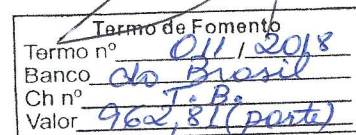 Termo de Fomento
Termo nº 011 / 2018
Banco do Brasil
Ch nº T. B.
Valor 962,81 (parte)